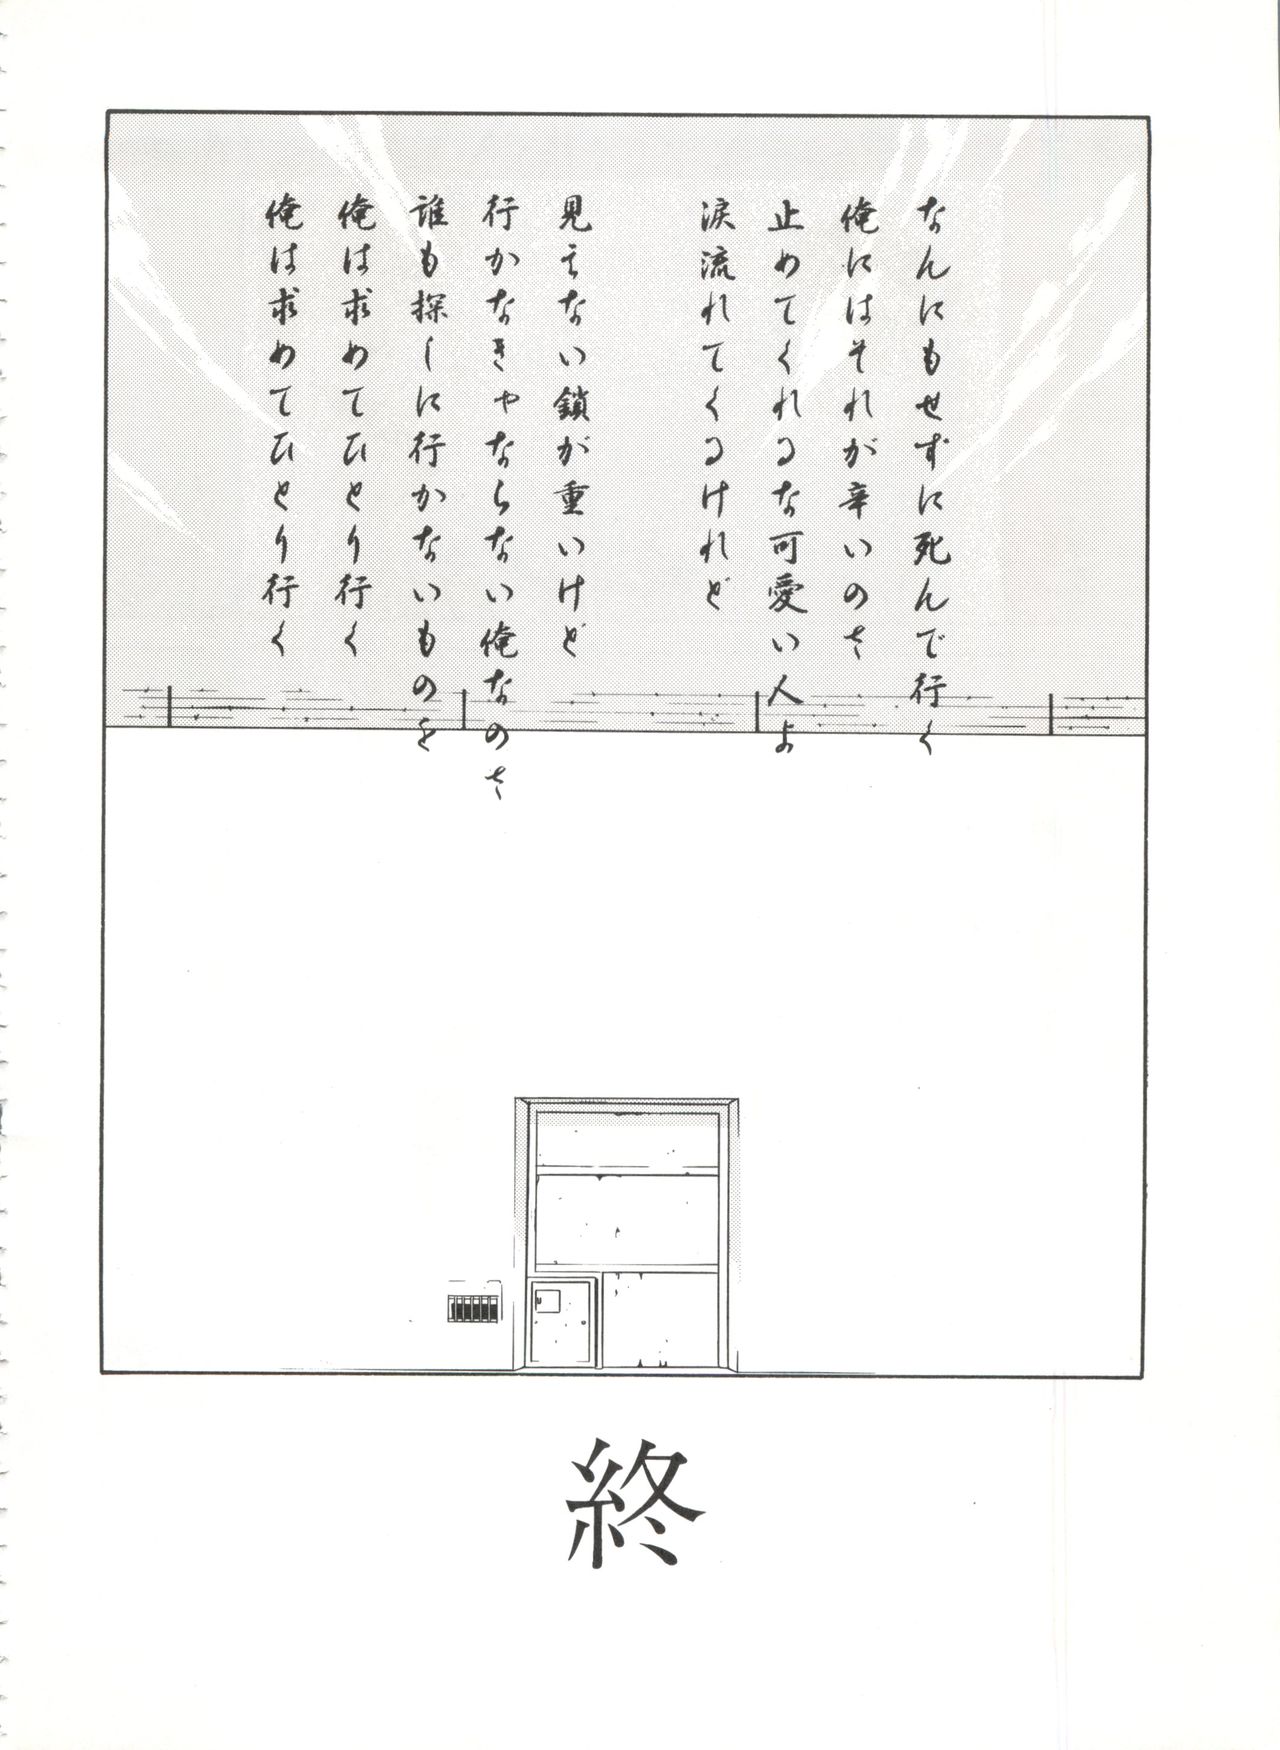 なんにもせずに死んで行く
俺にはそれが辛いのさ
止めてくれるな可愛い人よ
涙流れてくるけれど
見えない鎖が重いけど
行かなきゃならない俺なのさ
誰も探しに行かないものを
俺は求めてひとり行く
俺は求めてひとり行く
終